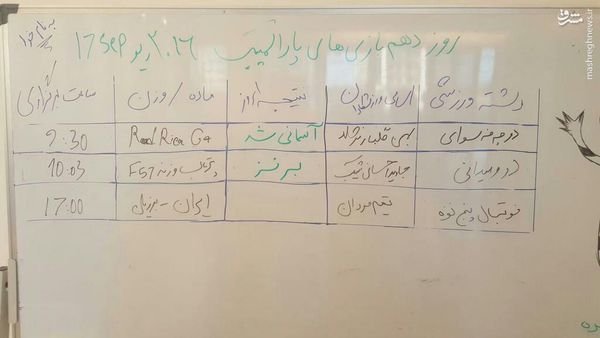 به نام خدا
روز دهم بازی های پارالمپیک ریو ۲۰۱۶ 17 Sep
رشته ورزشی اسامی ورزشکاران نتیجه/روز ماده / وزن ساعت برگزاری
دوچرخه سواری بهمن گلبارنژاد آسمانی شد Road Race C4 9:30
دو و میدانی جاوید احسانی شکیب برنز پرتاب وزنه F57 10:03
فوتبال پنج نفره تیم مردان ایران - برزیل 17:00
مشرق
mashreghnews.ir